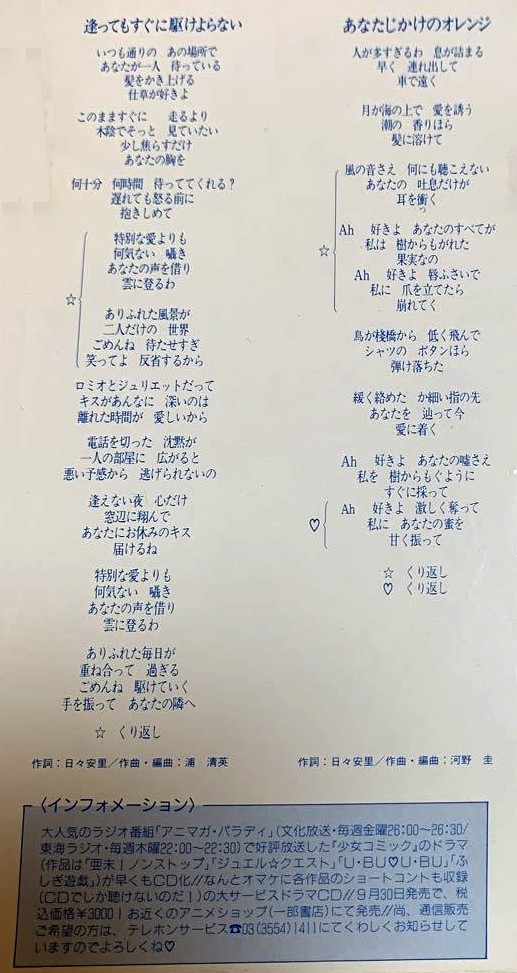 逢ってもすぐに駆けよらない
いつも通りの　あの場所で
あなたが一人　待っている
髪をかき上げる
仕草が好きよ
このまますぐに　走るより
木陰でそっと　見ていたい
少し焦らすだけ
あなたの胸を
何十分　何時間　待っててくれる？
遅れても怒る前に
抱きしめて
☆
特別な愛よりも
何気ない　囁き
あなたの声を借り
雲に登るわ
ありふれた風景が
二人だけの　世界
ごめんね　待たせすぎ
笑ってよ　反省するから
ロミオとジュリエットだって
キスがあんなに　深いのは
離れた時間が　愛しいから
電話を切った　沈黙が
一人の部屋に　広がると
悪い予感から　逃げられないの
逢えない夜　心だけ
窓辺に翔んで
あなたにお休みのキス
届けるね
特別な愛よりも
何気ない　囁き
あなたの声を借り
雲に登るわ
ありふれた毎日が
重ね合って　過ぎる
ごめんね　駆けていく
手を振って　あなたの隣へ
☆　くり返し
作詞：日々安里／作曲・編曲：浦　清英
あなたじかけのオレンジ
人が多すぎるわ　息が詰まる
早く　連れ出して
車で遠く
月が海の上で　愛を誘う
潮の　香りほら
髪に溶けて
☆
風の音さえ　何にも聴こえない
あなたの　吐息だけが
耳を衝く
Ah　好きよ　あなたのすべてが
私は　樹からもがれた
果実なの
Ah　好きよ　唇ふさいで
私に　爪を立てたら
崩れてく
鳥が桟橋から　低く飛んで
シャツの　ボタンほら
弾け落ちた
緩く絡めた　か細い指の先
あなたを　辿って今
愛に着く
Ah　好きよ　あなたの嘘さえ
私を　樹からもぐように
すぐに採って
♡
Ah　好きよ　激しく奪って
私に　あなたの蜜を
甘く振って
☆　くり返し
♡　くり返し
作詞：日々安里／作曲・編曲：河野　圭
〈インフォメーション〉
大人気のラジオ番組「アニマガ・パラディ」（文化放送・毎週金曜26:00～26:30/
東海ラジオ・毎週木曜22:00～22:30）で好評放送した『少女コミック』のドラマ
（作品は「亜未！ノンストップ」「ジュエル☆クエスト」「U・BU♡U・BU」「ふ
しぎ遊戯」）が早くもCD化//なんとオマケに各作品のショートコントも収録
（CDでしか聴けないのだ！）の大サービスドラマCD//9月30日発売で、税
込価格￥3000！お近くのアニメショップ（一部書店）にて発売//尚、通信販売
ご希望の方は、テレホンサービス☎03(3554)1411にてくわしくお知らせして
いますのでよろしくね♡